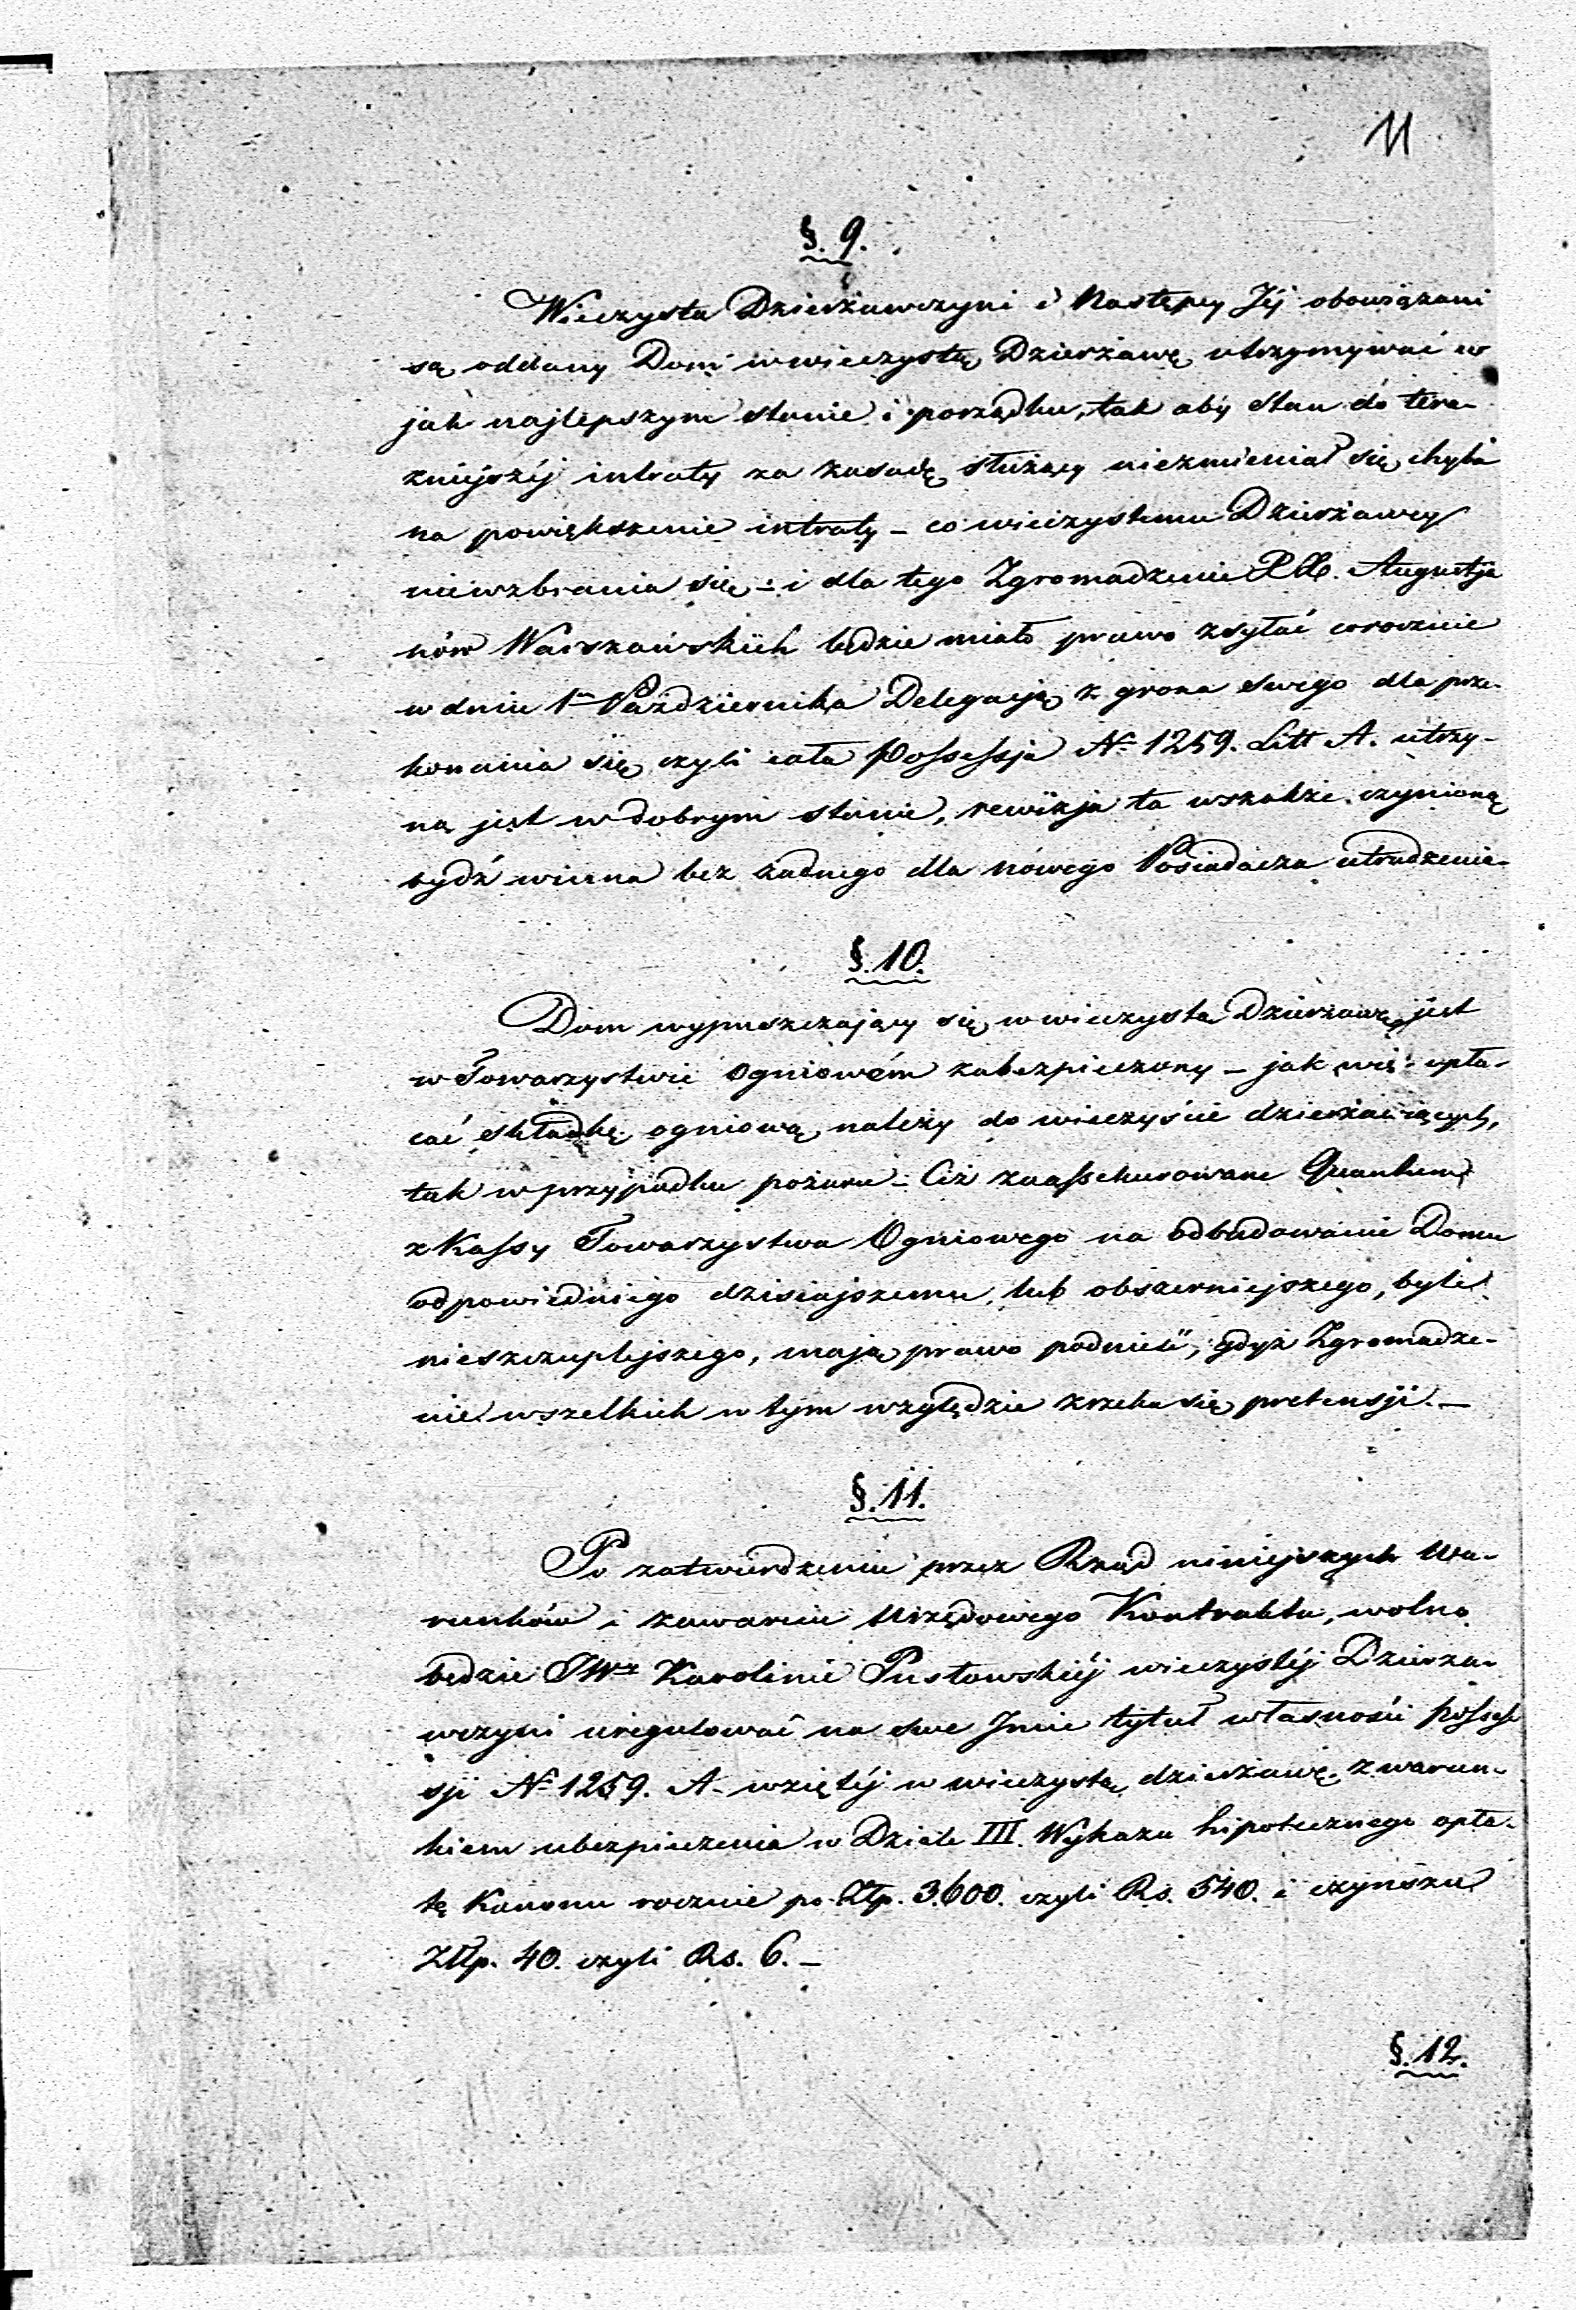 11
§. 9.
Wieczysta Dzierżawczyni i Następcy Jéj obowiązani
są oddany Dom w wieczystą Dzierżawę utrzymywać w
jak najlepszym stanie i porządku, tak aby stan do tera-
zniejszéj intraty za zasadę służący niezmieniał się chyba
na powiększenie intraty – co wieczystemu Dzierżawcy
niewzbrania się – i dla tego Zgromadzenie Augustja
nów Warszawskich będzie miało prawo zsyłać corocznie
w dniu 1 Października Delegacją z grona swego dla prze-
konania się czyli cała Possessja No 1259. Litt A. utrzy-
na jest w dobrym stanie, rewizja ta wszakże czynioną
bydź winna bez żadnego dla nowego Posiadacza utrudzenia.
§. 10.
Dom wypuszczający się w wieczystą Dzierżawę jest
w Towarzystwie Ogniowém zabezpieczony – jak opła-
cać składkę ogniową należy do wieczyście dzierżawiących,
tak w przypadku pożaru – Ciż zaassekurowane Quantum
z Kassy Towarzystwa Ogniowego na odbudowanie Domu
odpowiedniego dzisiajszemu, lub obszerniejszego, byle
nieszczuplejszego, mają prawo podnieść, gdyż Zgromadze-
nie wszelkich w tym względzie zrzeka się pretensji. –
§. 11.
Po zatwierdzeniu przez Rząd niniejszych Wa-
runków i zawarciu Urzędowego Kontraktu, wolno
będzie Karolinie Pusłowskiéj wieczystéj Dzierża-
wczyni uregulować na swe Imie tytuł własności possess
sji No 1259. A. wziętéj w wieczystą dzierżawę z warun-
kiem ubezpieczenia w Dziale III. Wykazu hipotecznego opła-
tę Kanonu rocznie po Złp. 3,600. czyli Rs. 540. i czynszu
Złlp. 40. czyli Rs. 6. –
§. 12.